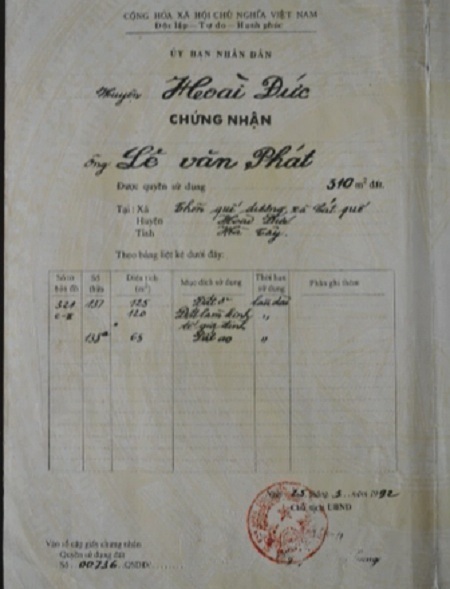 CỘNG HÒA XÃ HỘI CHỦ NGHĨA VIỆT NAM
Độc lập - Tự do - Hạnh phúc
ỦY BAN NHÂN DÂN
Huyện Hoài Đức
CHỨNG NHẬN
Ông Lê văn Phát
Được quyền sử dụng 310 m² đất.
Tại : Xã thôn quế dương, xã Cát quế
Huyện Hoài Đức
Tỉnh Hà Tây.
Theo bảng liệt kê dưới đây:
Số tờ bản đồ Số thửa Diện tích (m²) Mục đích sử dụng Thời hạn sử dụng Phần ghi thêm
137 125 Đất ở lâu dài
120 Đất làm kinh "
tế gia đình
65 Đất ao "
1992
Chủ tịch UBND
Vào sổ cấp giấy chứng nhận
Quyền sử dụng đất
Số 00736 QSDĐ/